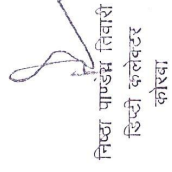 निष्ठा पाण्डेय तिवारी
डिप्टी कलेक्टर
कोरबा